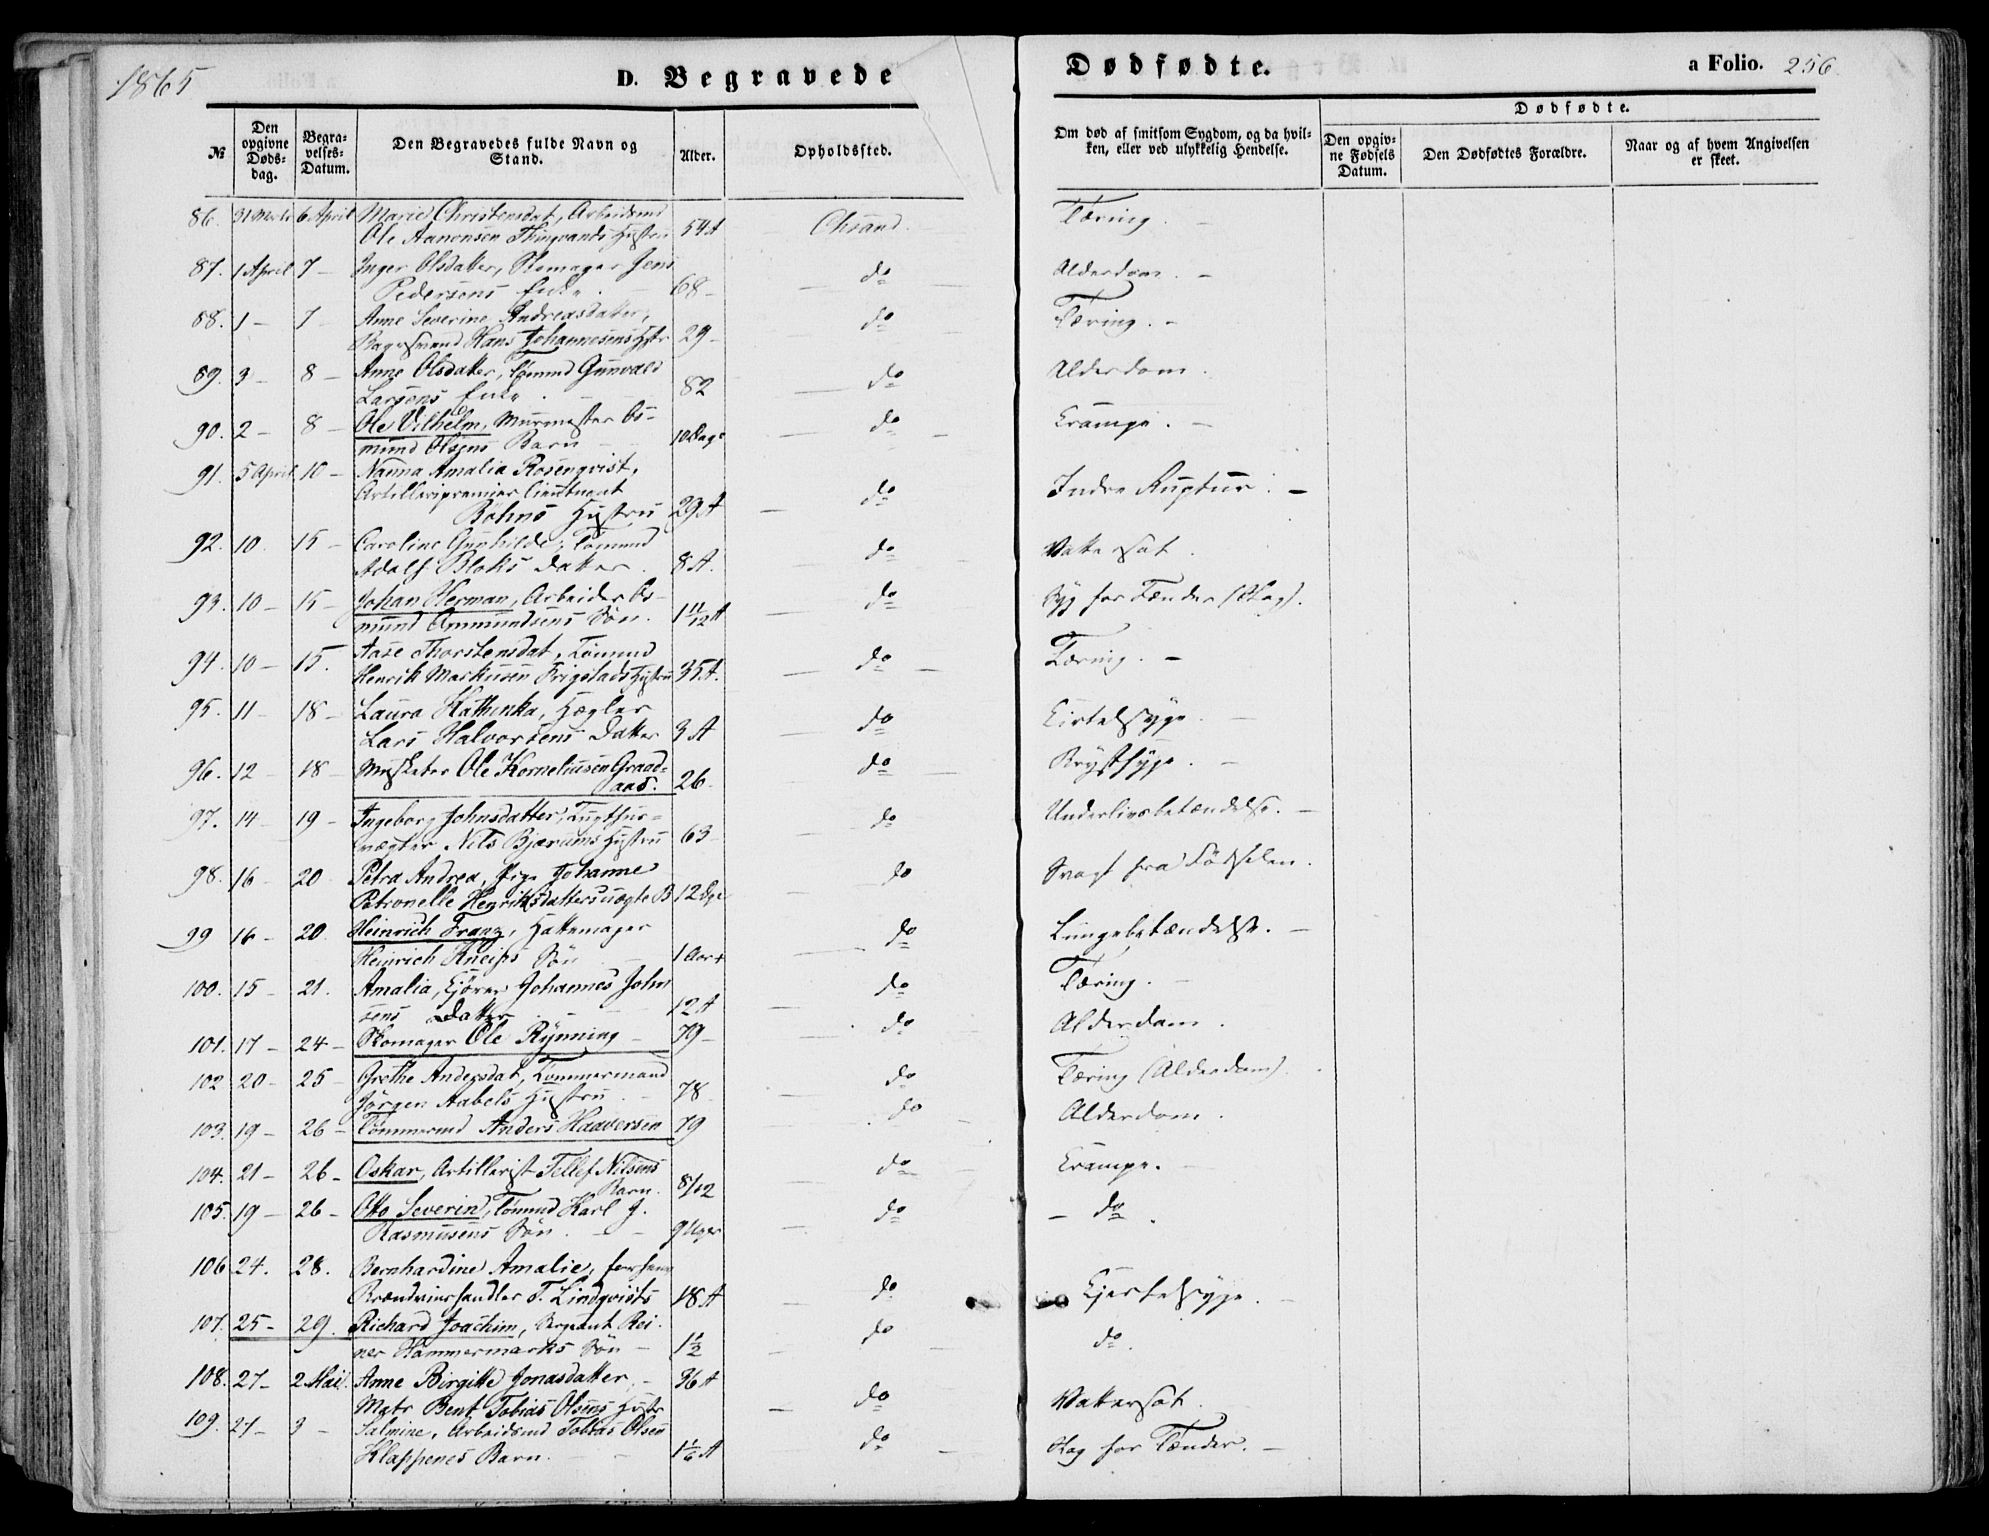 1865
D. Begravede
Dødfødte.
a Folio. 256
№
Den opgivne Døds-dag.
Begra-velses-Datum.
Den Begravedes fulde Navn og Stand.
Alder.
Opholdssted.
Om død af smitsom Sygdom, og da hvil-ken, eller ved ulykkelig Hendelse.
Dødfødte.
Den opgiv-ne Fødsels Datum.
Den Dødfødtes Forældre.
Naar og af hvem Angivelsen er skeet.
86. 31 Marts 6 April Marie Christensdat, Arbeidsmd
Ole Aanensen Thingvands Hustru 54 A Chsand. Tæring.
87. 1 April 7 - Inger Olsdatter, Skomager Jens
Pedersens Enke. 68 - do Alderdom. -
88. 1 - 7 Anne Severine Andreasdatter,
Bagersvend Hans Johannesens Hstr 29 - do Tæring. -
89. 3 - 8 - Anne Olsdatter, Tømmd Gunvald
Larsens Enke. 82 do Alderdom.
90. 2 - 8 - Ole Vilhelm, Murmester Os-
mund Olsens Barn 10 Dage do Krampe. -
91. 5 April 10 - Nanna Amalia Rosenqvist,
Artilleripremierlieutnant
Bøhns Hustru 29 A do Indre Ruptur. -
92. 10. 15 - Caroline Gunhilde, Tømmd
Adolf Bloks Datter. 8 A. do Vattersot.
93. 10 - 15 - Johan Herman, Arbeider Os-
mund Ommundsens Søn. 1 11/12 A do Syg for Tænder (Slag).
94. 10 - 15. Aase Thorstensdat, Tømmd
Henrik Markusen Frigstads Hustru 35 A. do Tæring. -
95. 11 - 18 - Laura Kathinka, Hegler
Lars Halvorsens Datter 3 A do Kirtelsyge.
96. 12 - 18 - Musketer Ole Korneliussen Graad-
aas. 26 do Brystsyge. -
97. 14 - 19 - Ingeborg Johnsdatter, Tugthus-
vægter Nils Bjærums Hustru 63 - do Underlivsbetændelse. -
98. 16 - 20 Petra Andrea, Pige Johanne
Petronelle Henriksdatters uægte B 12 Dge do Svagt fra Fødselen.
99 16 - 20. Heinrich Franz, Hattemager
Heinrich Kneips Søn 1 Aar do Lungebetændelse. -
100. 15 - 21. Amalia, Kjører Johannes John
sens Datter 12 A do Tæring. -
101. 17 - 24 - Skomager Ole Rynning - 79 - do Alderdom.
102 20 - 25 - Grethe Andersdat, Tømmermand
Jörgen Aabels Hustru. - 78 do Tæring (Alderdom).
103. 19 - 26 - Tømmermd Anders Haaversen 79 do Alderdom.
104. 21 - 26 - Oskar, Artillerist Tellef Nilsens
Barn. 8/12 do Krampe.
105. 19 - 26 - Otto Severin, Tømmd Karl J.
Rasmusens Søn. - 9 Uger do - do.
106 24. 28. Bernhardine Amalie, forhenv
Brændvinshandler T. Lindqvists 18 A do Kjertelsyge. -
107. 25 - 29. Richard Joachim, Sergeant Rei-
ner Hammermarks Søn - 1 1/2 do do.
108. 27 - 2 Mai. Anne Birgitte Jonasdatter, - 36 A
Matr Bent Tobias Olsens Hustr do Vattersot.
109. 27 - 3 - Salmine, Arbeidsmd Tobias Olsen
Klappenes Barn. 1 1/6 A do Slag for Tænder. -